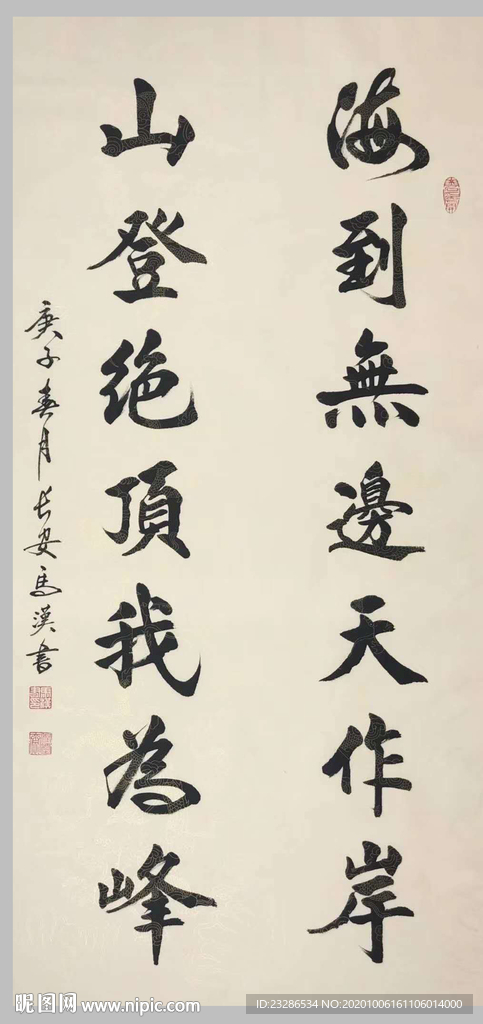 海到無邊天作岸
山登絶頂我為峰
庚子春月長安馬漢書
昵图网 www.nipic.com
ID:23286534 NO:20201006161106014000